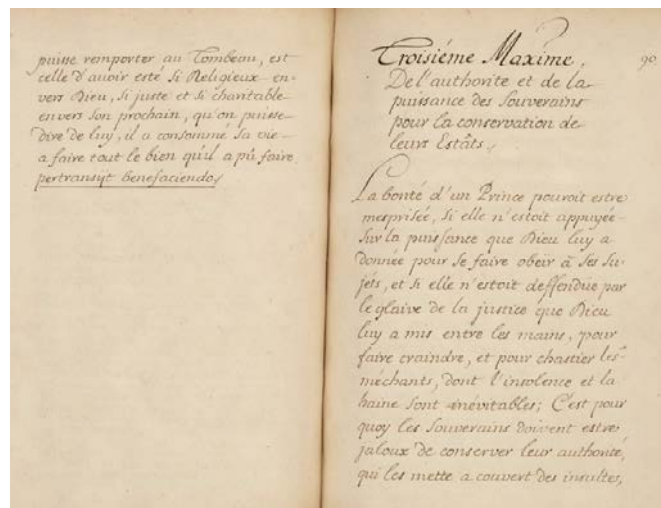 puisse remporter au Tombeau, est
celle d'auoir esté si Religieux en-
vers Dieu, si juste et si charitable
envers son prochain, qu'on puisse
dire de luy, il a consommé sa vie
a faire tout le bien qu'il a pû faire,
pertransijt benefaciendo,
Troisiéme Maxime,
90
De l'authorite et de la
puissance des Souverains
pour la conservation de
leurs Estâts,
La bonté d'un Prince pouroit estre
mesprisée, si elle n'estoit appuyée
sur la puissance que Dieu luy a
donnée pour se faire obeir à ses su-
jéts, et si elle n'estoit deffendüe par
le glaive de la justice que Dieu
luy a mis entre les mains, pour
faire craindre, et pour chastier les
méchants, dont l'insolence et la
haine sont inévitables; C'est pour
quoy les Souverains doivent estre
jaloux de conserver leur authorité,
qui les mette a couvert des insultes,